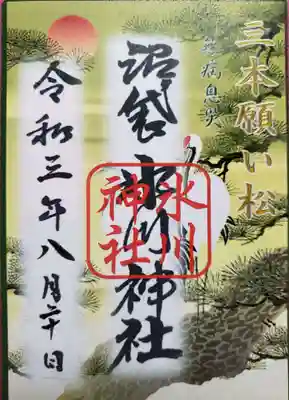 三本願い松
無病息災
沼袋氷川神社
氷川
神社
令和三年八月二十日